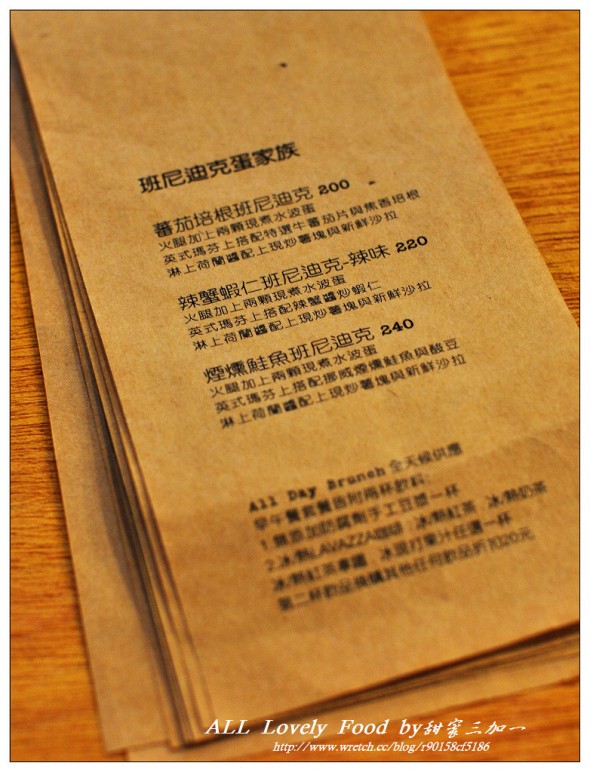 班尼迪克蛋家族
蕃茄培根班尼迪克 200
火腿加上兩顆現煮水波蛋
英式瑪芬上搭配特選牛蕃茄片與焦香培根
淋上荷蘭醬配上現炒薯塊與新鮮沙拉
辣蟹蝦仁班尼迪克-辣味 220
火腿加上兩顆現煮水波蛋
英式瑪芬上搭配辣蟹醬炒蝦仁
淋上荷蘭醬配上現炒薯塊與新鮮沙拉
煙燻鮭魚班尼迪克 240
火腿加上兩顆現煮水波蛋
英式瑪芬上搭配挪威煙燻鮭魚與酸豆
淋上荷蘭醬配上現炒薯塊與新鮮沙拉
All Day Brunch 全天候供應
早午餐套餐皆附兩杯飲料:
1.無添加防腐劑手工豆漿一杯
2.冰/熱LAVAZZA咖啡 . 冰/熱紅茶 . 冰/熱奶茶
冰/熱紅茶拿鐵 . 冰現打果汁任選一杯
第二杯飲品換購其他任何飲品折扣20元
ALL Lovely Food by甜蜜三加一
http://www.wretch.cc/blog/r90158cf5186